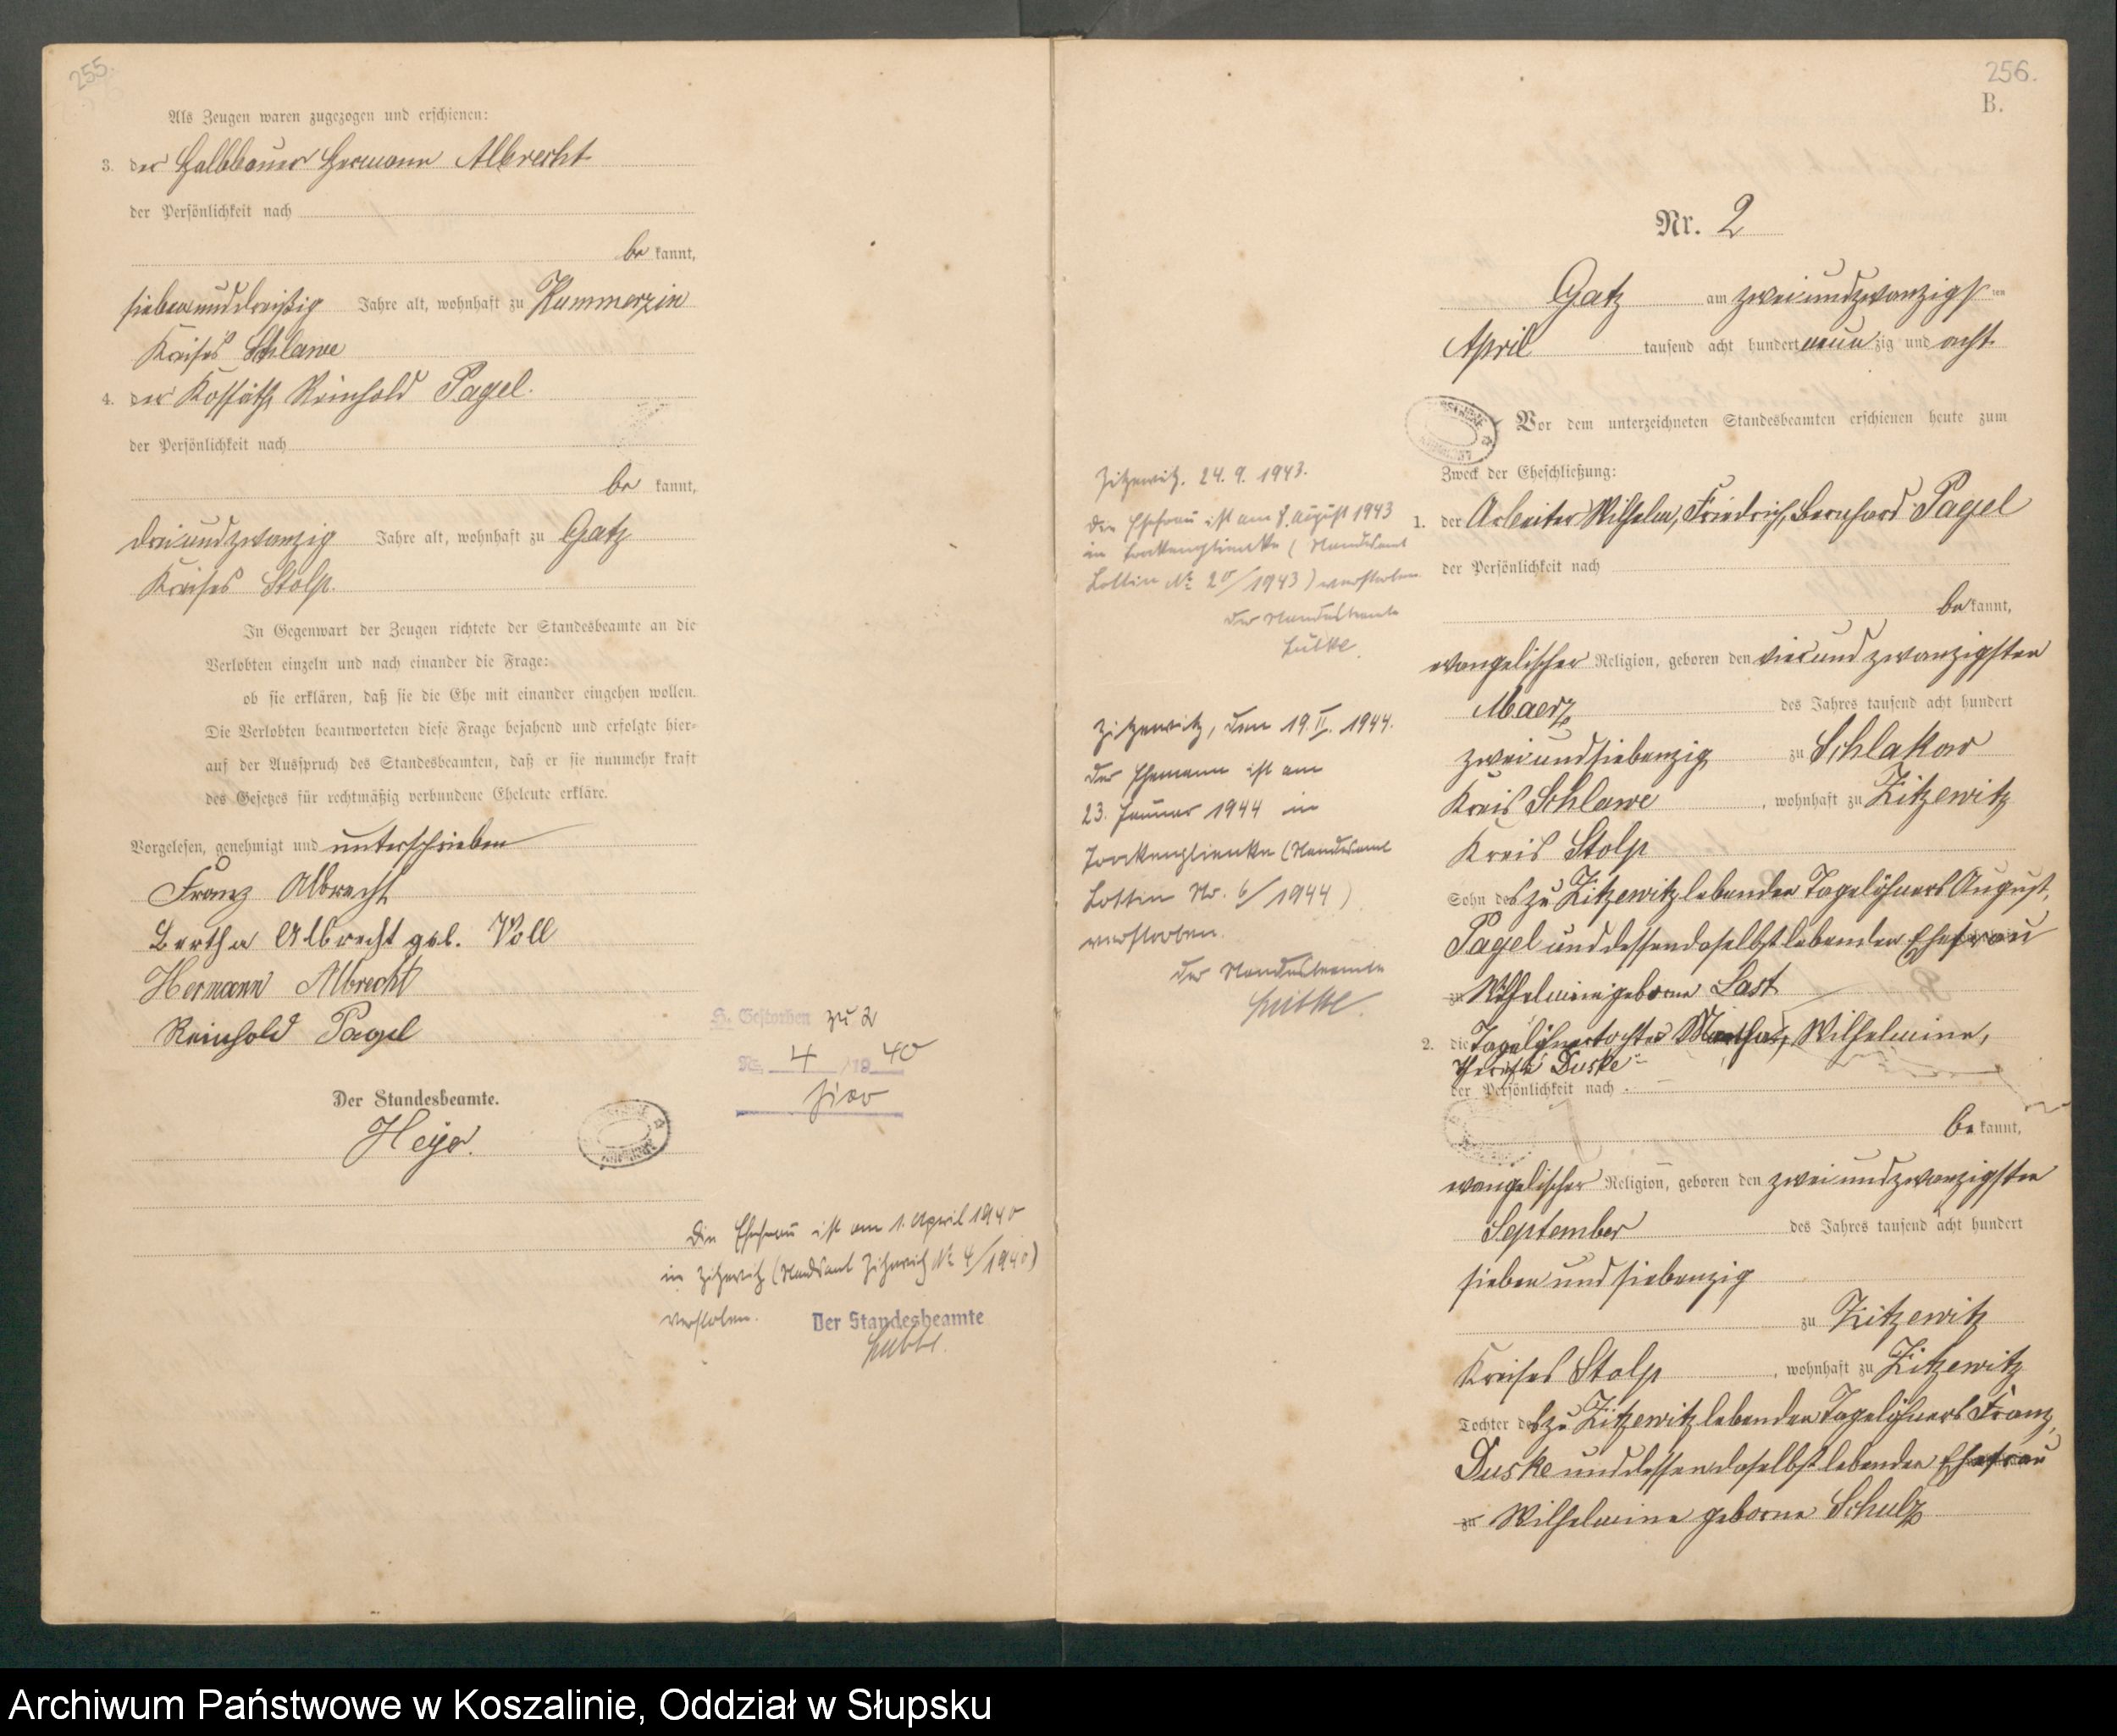 255.
Als Zeugen waren zugezogen und erschienen:
3. der Halbbauer Hermann Albrecht
der Persönlichkeit nach
be kannt,
siebenunddreißig Jahre alt, wohnhaft zu Kummerzin
Kreises Schlawe
4. der Kossäth Reinhold Pagel.
der Persönlichkeit nach
be kannt,
dreiundzwanzig Jahre alt, wohnhaft zu Gatz
Kreises Stolp.
In Gegenwart der Zeugen richtete der Standesbeamte an die
Verlobten einzeln und nach einander die Frage:
ob sie erklären, daß sie die Ehe mit einander eingehen wollen.
Die Verlobten beantworteten diese Frage bejahend und erfolgte hier-
auf der Ausspruch des Standesbeamten, daß er sie nunmehr kraft
des Gesetzes für rechtmäßig verbundene Eheleute erkläre.
Vorgelesen, genehmigt und unterschrieben
Franz Albrecht
Bertha Albrecht geb. Voll
Hermann Albrecht
Reinhold Pagel
Der Standesbeamte.
Heyer.
Gestorben zu 2
No. 4 / 19 40
hier
Die Ehefrau ist am 1. April 1940
in Zitzewitz (Standesamt Zitzewitz No 4/1940)
verstorben.
Der Standesbeamte
256.
B.
Nr. 2
Gatz am zweiundzwanzigsten
April tausend acht hundert neunzig und acht
Vor dem unterzeichneten Standesbeamten erschienen heute zum
Zweck der Eheschließung:
1. der Arbeiter Wilhelm, Friedrich, Bernhard Pagel
der Persönlichkeit nach
be kannt,
evangelischer Religion, geboren den vierundzwanzigsten
Maerz des Jahres tausend acht hundert
zweiundsiebenzig zu Schlakow
Kreis Schlawe, wohnhaft zu Zitzewitz
Kreis Stolp
Sohn des zu Zitzewitz lebenden Tagelöhners August,
Pagel und dessen daselbst lebenden Ehefrau
zu Wilhelmine geborne Last
2. die Tagelöhnertochter Martha, Wilhelmine,
Therese Duske
der Persönlichkeit nach
be kannt,
evangelischer Religion, geboren den zweiundzwanzigsten
September des Jahres tausend acht hundert
sieben und siebenzig
zu Zitzewitz
Kreises Stolp, wohnhaft zu Zitzewitz
Tochter des zu Zitzewitz lebenden Tagelöhners Franz,
Duske und dessen daselbst lebenden Ehefrau
zu Wilhelmine geborne Schulz
Zitzewitz. 24. 9. 1943.
Die Ehefrau ist am 8. August 1943
in Trockenglienke (Standesamt
Lottin No 20/1943) verstorben
Der Standesbeamte
Lübke.
Zitzewitz, den 19. II. 1944.
Der Ehemann ist am
23. Januar 1944 in
Trockenglienke (Standesamt
Lottin Nr. 6/1944)
verstorben.
Der Standesbeamte
Lübke.
Archiwum Państwowe w Koszalinie, Oddział w Słupsku